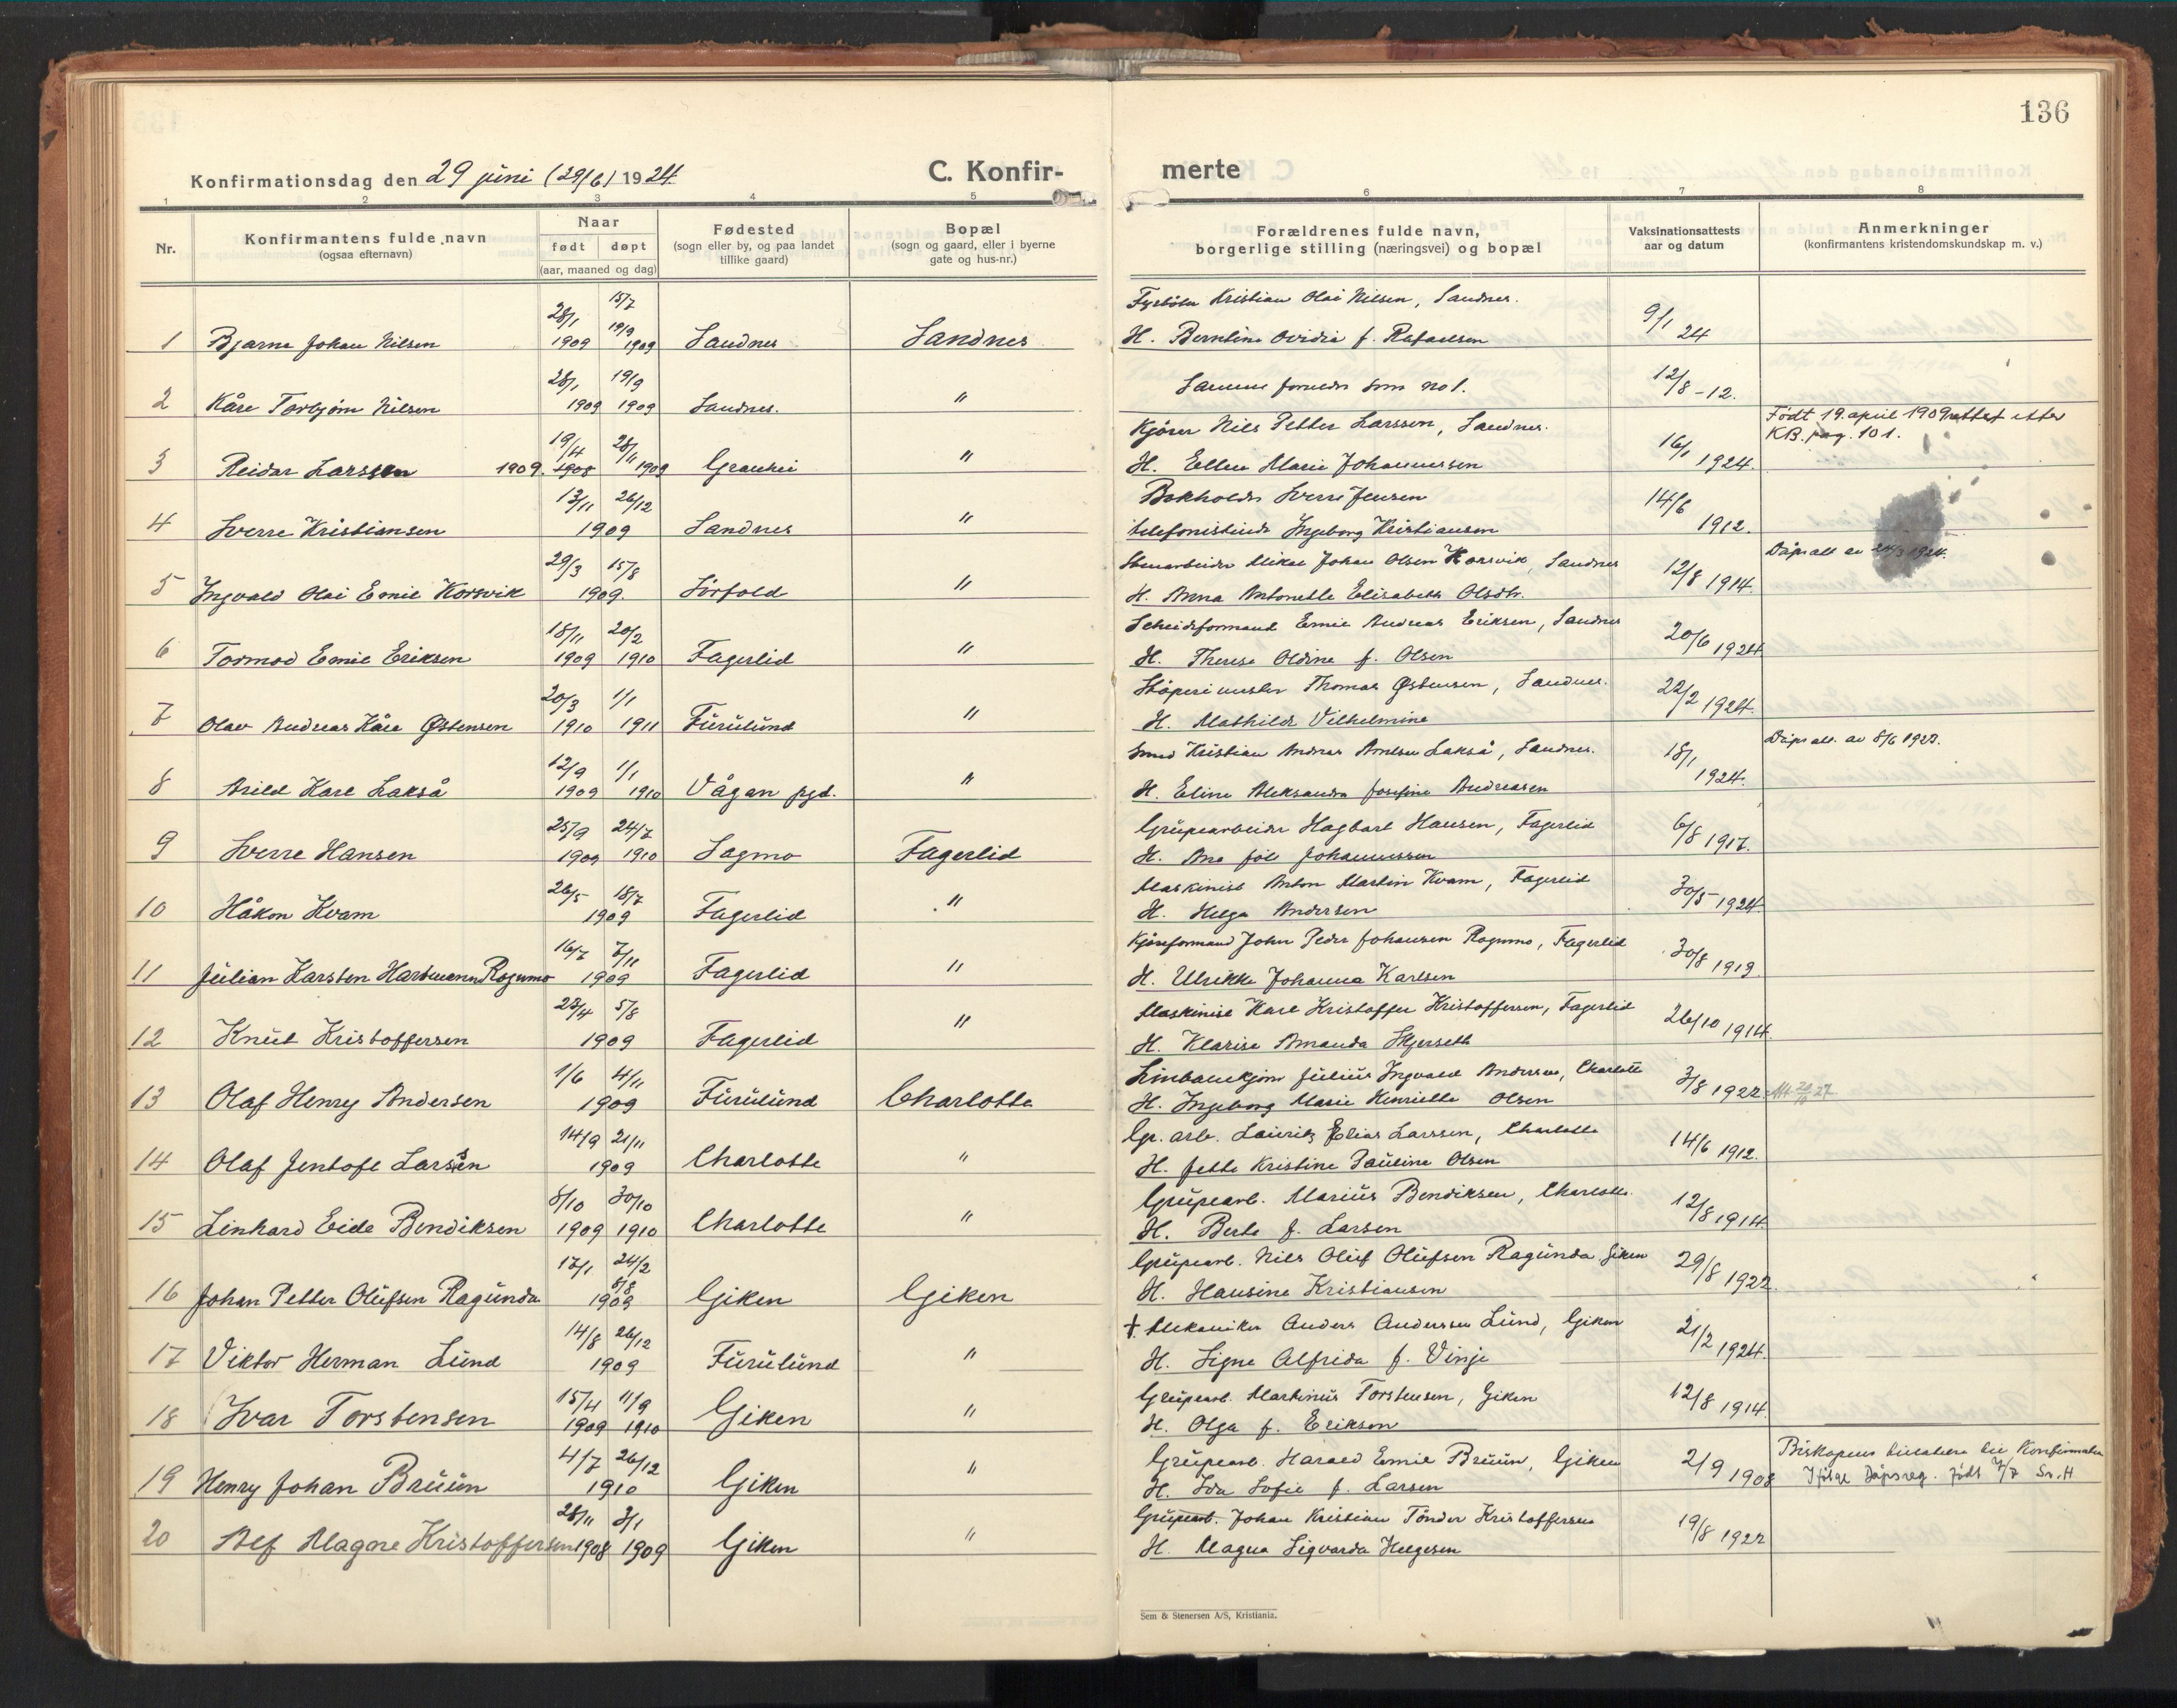 136
Konfirmationsdag den 29 juni (29/6) 1924.
C. Konfir-
merte
1 2 3 4 5 6 7 8
Nr.
Konfirmantens fulde navn
(ogsaa efternavn)
Naar
født døpt
(aar, maaned og dag)
Fødested
(sogn eller by, og paa landet
tillike gaard)
Bopæl
(sogn og gaard, eller i byerne
gate og hus-nr.)
Forældrenes fulde navn,
borgerlige stilling (næringsvei) og bopæl
Vaksinationsattests
aar og datum
Anmerkninger
(konfirmantens kristendomskundskap m. v.)
15/7
28/1 19/9 Fyrbøter Kristian Olai Nilsen, Sandnes. 9/1
1 Bjarne Johan Nilsen 1909 1909 Sandnes Sandnes H. Berntine Ovidia f. Rafaelsen 24
28/1 19/9 12/8-12.
2 Kåre Torbjørn Nilsen 1909 1909 Sandnes. " Samme forældre som no 1.
19/4 28/11 Kjører Nils Petter Larssen, Sandnes. 16/1 Født 19. april 1909 rettet etter
KB. pag. 101.
3 Reidar Larssen 1909. 1908 1909 Grønli " H. Ellen Marie Johannessen 1924.
13/11 26/12 Bokholder Sverre Jensen 14/6
4 Sverre Kristiansen 1909 Sandnes " telefonistinde Ingeborg Kristiansen 1912.
29/3 15/8 Mikal Johan Olsen Korsvik, Sandnes 12/8 1914. Dåpsatt. av 24/3 1924.
5 Ingvald Olai Emil Korsvik 1909. Sørfold " H. Anna Antonette Elisabeth Olsdtr.
18/11 20/2 Scheideformand Emil Andreas Eriksen, Sandnes 20/6 1924
6 Tormod Emil Eriksen 1909 1910 Fagerlid " H. Therese Oldine f. Olsen
20/3 1/1 Støperimester Thomas Østensen, Sandnes. 22/2 1924.
7 Olav Andreas Kåre Østensen 1910 1911 Furulund " H. Mathilde Vilhelmine
12/9 1/1 Smed Kristian Andreas Arntsen Lakså, Sandnes. 18/1 Dåpsatt. av 8/6 1923.
8 Arild Karl Lakså 1909 1910 Vågan pgd. " H. Eline Aleksandra Josefine Andreasen 1924.
25/9 24/7 Grubearbeider Hagbart Hansen, Fagerlid 6/8 1917.
9 Sverre Hansen 1909 1910 Sagmo Fagerlid H. Johannessen
26/5 18/7 Maskinist Anton Martin Kvam, Fagerlid 30/5 1924.
10 Håkon Kvam 1909 Fagerlid " H. Helga Andersen
16/7 7/11 Kjøreformand John Peder Johansen Rognmo, Fagerlid 30/8 1919.
11 Julian Karsten Hartmann Rognmo 1909 Fagerlid " H. Ulrikke Johanna Karlsen
23/4 5/8 Maskinist Karl Kristoffer Kristoffersen, Fagerlid 26/10 1914.
12 Knut Kristoffersen 1909 Fagerlid " H. Klarise Amanda Skjerseth
1/6 4/11 Linbanekjører Julius Ingvald Andersen, Charlotte 3/8 1922
13 Olaf Henry Andersen 1909 Furulund Charlotte H. Ingeborg Marie Henriette Olsen
14/9 21/11 Gr. arb. Lauritz Elias Larssen, Charlotte 14/6 1912.
14 Olaf Jentoft Larsen 1909 Charlotte " H. Jette Kristine Pauline Olsen
8/10 30/10 Grubearb. Marius Bendiksen, Charlotte. 12/8 1914.
15 Linhard Eide Bendiksen 1909 1910 Charlotte " H. Berte f. Larsen
17/1 24/2 Grubearb. Nils Oluf Olufsen Ragunda Giken 29/8 1922.
8/8
16 Johan Petter Olufsen Ragunda 1909 Giken Giken H. Hansine Kristiansen
14/8 26/12 † Mekaniker Anders Anderssen Lund, Giken 21/2 1924.
17 Viktor Herman Lund 1909 Furulund " H. Signe Alfrida f. Vinje
15/4 11/9 Grubearb. Martinus Torstensen, Giken 12/8 1914.
18 Ivar Torstensen 1909 1910 Giken " H. Olga f. Eriksen
4/7 26/12 Grubearb. Harald Emil Bruun, Giken 2/9 1908 Biskopens tillatelse til Konfirmation
Ifølge Dåpsreg. født 4/7 Sn. H
19 Henry Johan Bruun 1910 Giken " H. Ida Sofie f. Larsen
28/11 3/1 Grubearb. Johan Kristian Tønder Kristoffersen 19/8 1922
20 Alf Magne Kristoffersen 1908 1909 Giken " H. Magna Sigvarda Helgesen
Sem & Stenersen A/S, Kristiania.